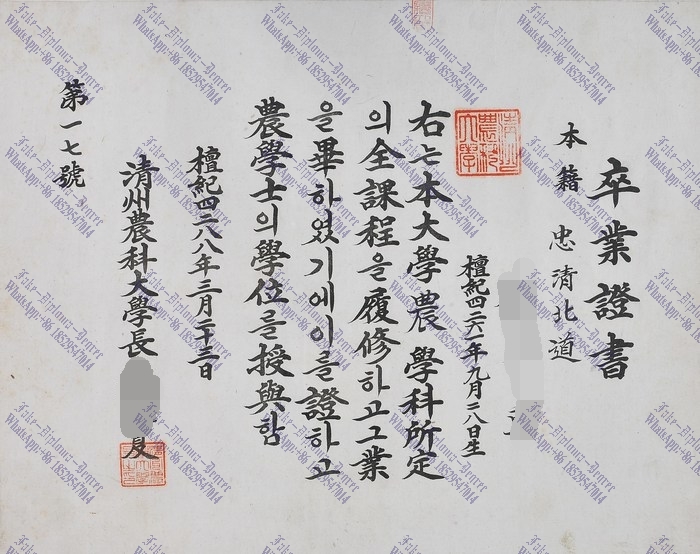 卒業證書
本籍 忠淸北道
檀紀四二六一年九月二八日生
淸州農科大學
右는本大學農學科所定
의全課程을履修하고그業
을畢하였기에이를證하고
農學士의學位를授與함
檀紀四二八八年三月二十三日
淸州農科大學長
第一七號
Fake-Diploma-Degree
WhatsApp:+86 18529547014